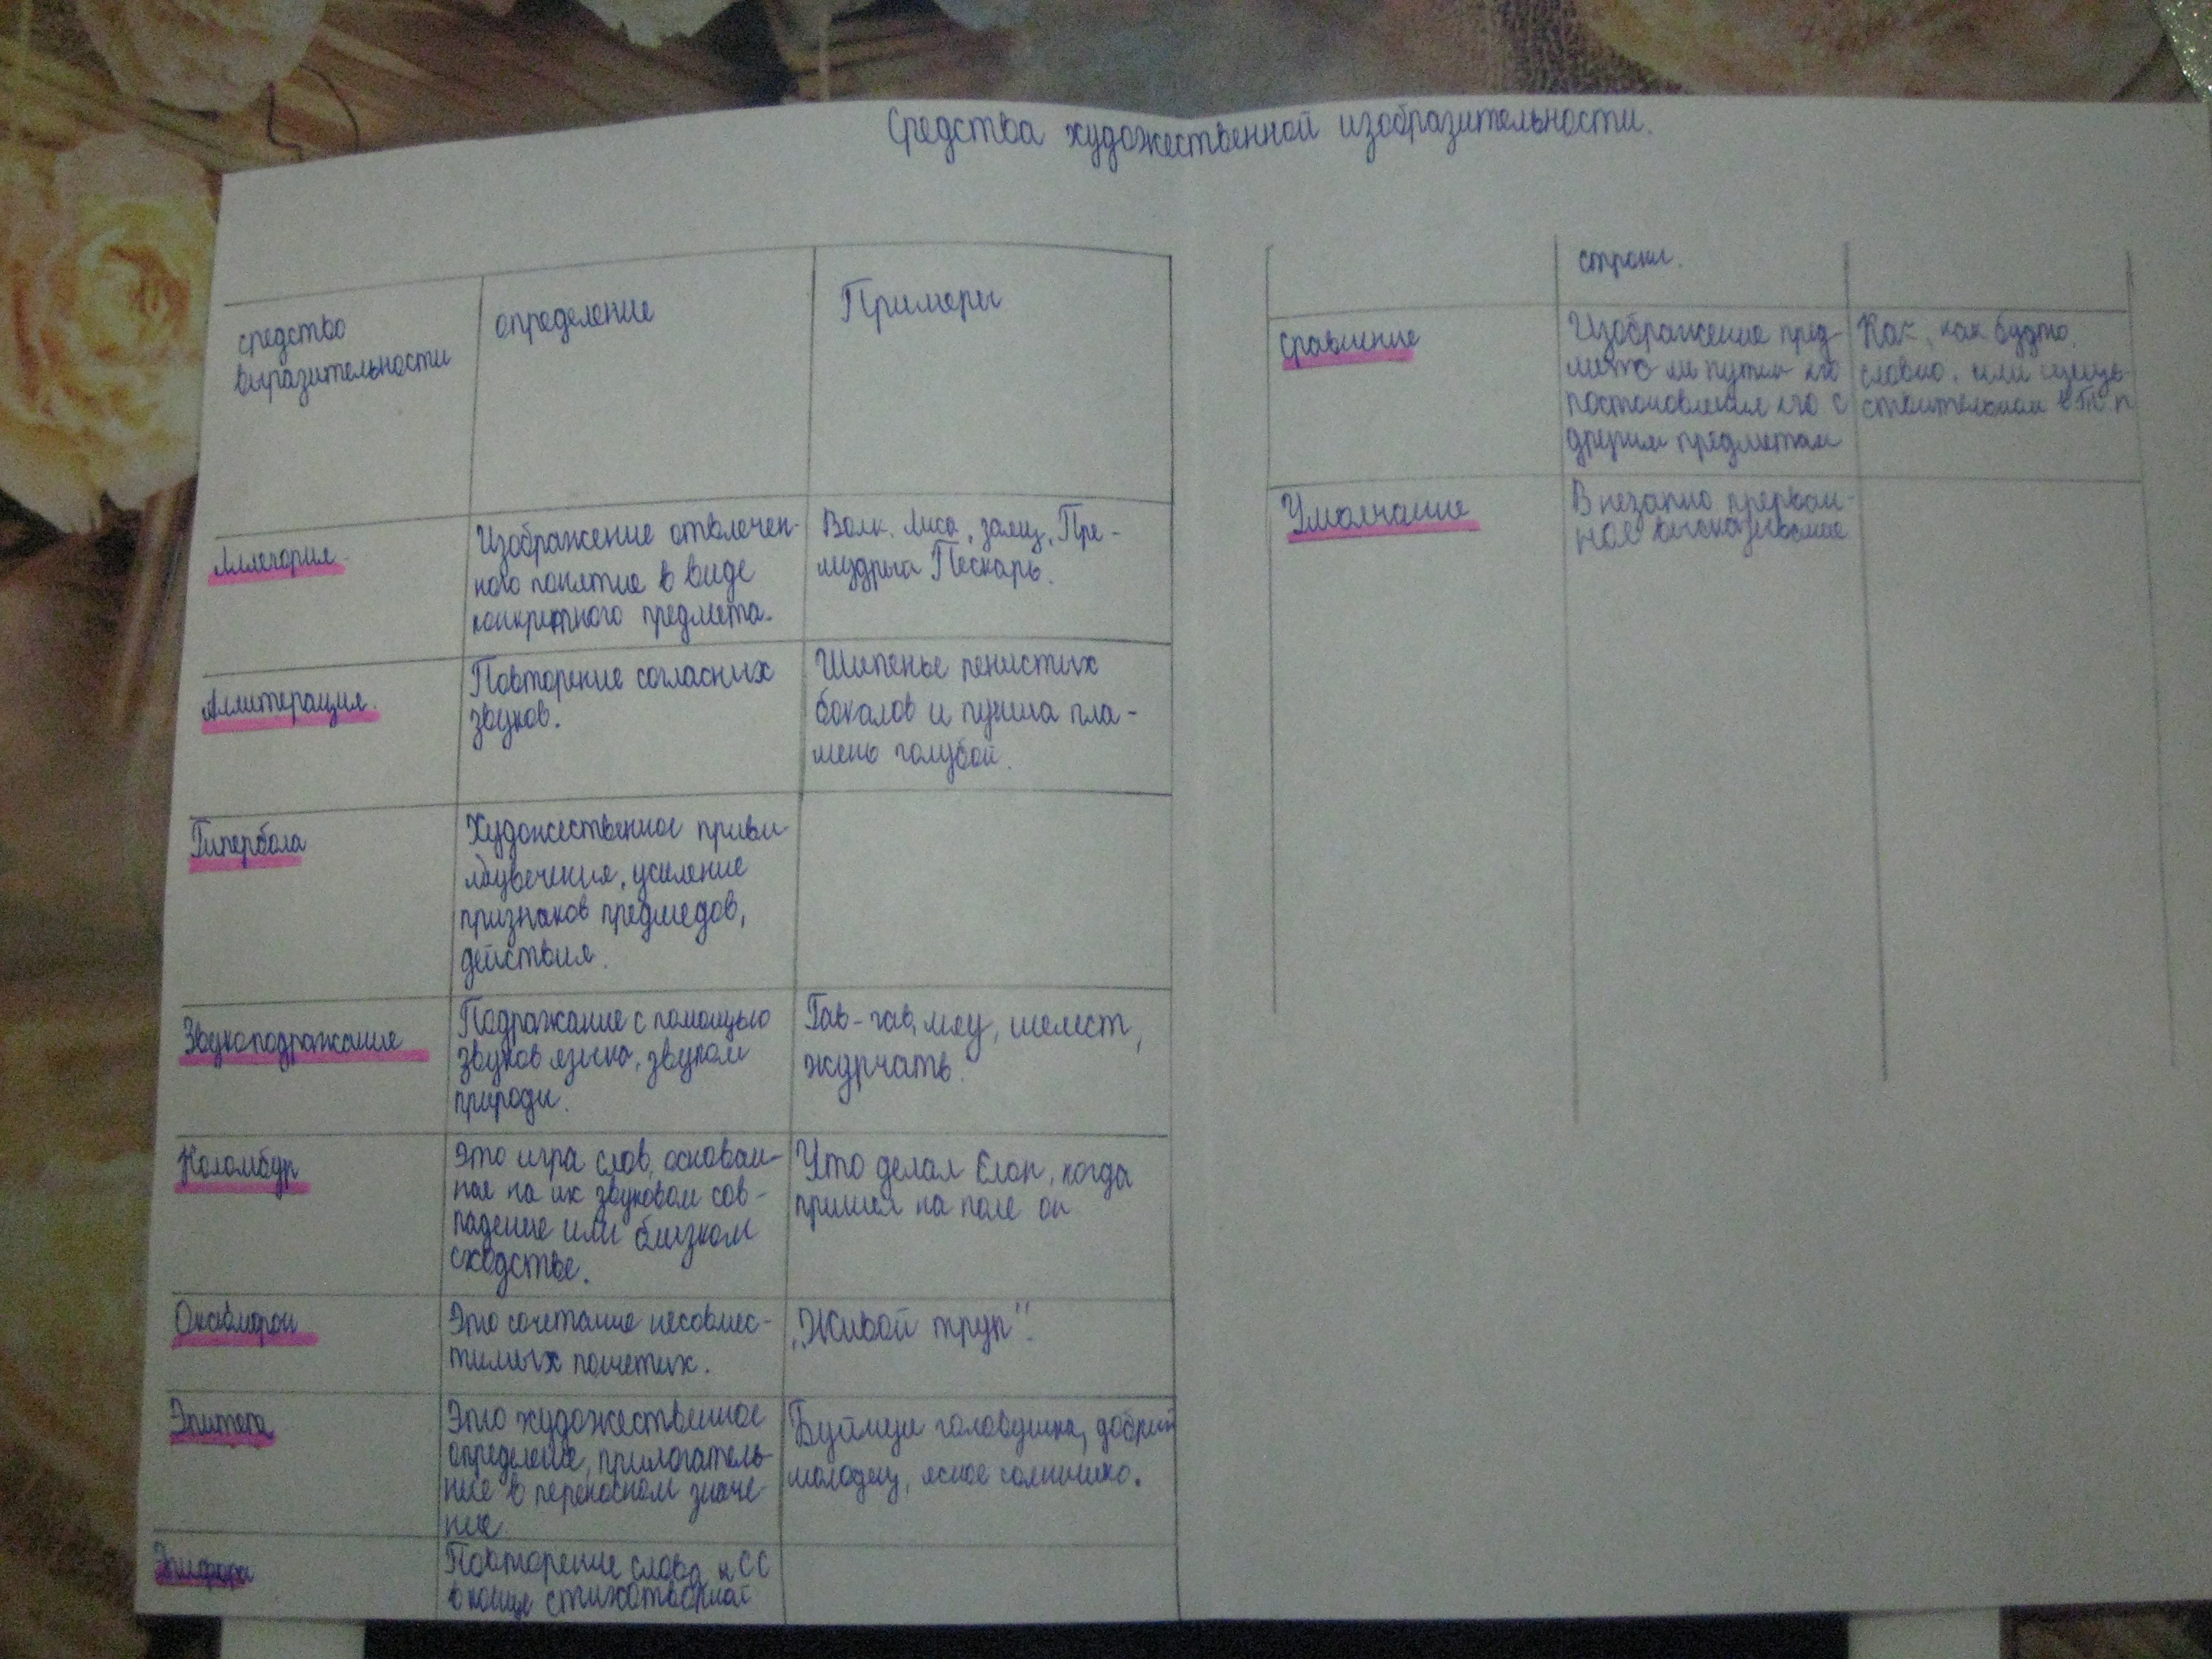 Средства художественной изобразительности.
средство
выразительности
определение
Примеры
Аллегория
Изображение отвлечен-
ного понятие в виде
конкретного предмета.
Волк. Лиса, заяц, Пре-
мудрыа Пескарь.
Аллитерация.
Повторение согласных
звуков.
Шипенье пенистых
бокалов и пунша пла-
мень голубой.
Гипербола
Художественное
усиление
признаков предмедов,
действия.
Звукоподражание
Подражание с помощью
звуков языка, звуком
природы.
Гав-гав, мяу, шелест,
журчать.
Коломбур
Это игра слов, основан-
ная на их звуковом сов-
падение или близком
сходстве.
Что делал Слон, когда
пришел на поле он
Оксюморон
Это сочетание несовмес-
тимых
„Живой труп".
Эпитета
Это художественное
определение, прилогатель-
ное в переносном значе-
ние
Буйнуя головушка, добрый
молодец, ясное солнышко.
Эпифора
Повторение слова
в конце стихотворной
строки.
Сравнение
Изображение пред-
путем его
постоновления его с
другим предметом
Как, как будто,
словно, или
Умолчание
Внезапно прерван-
ное высказывание